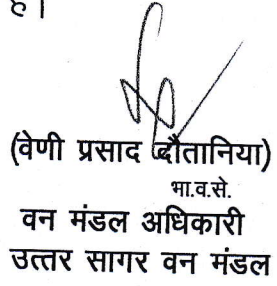 है।
(वेणी प्रसाद दौतानिया)
भा.व.से.
वन मंडल अधिकारी
उत्तर सागर वन मंडल